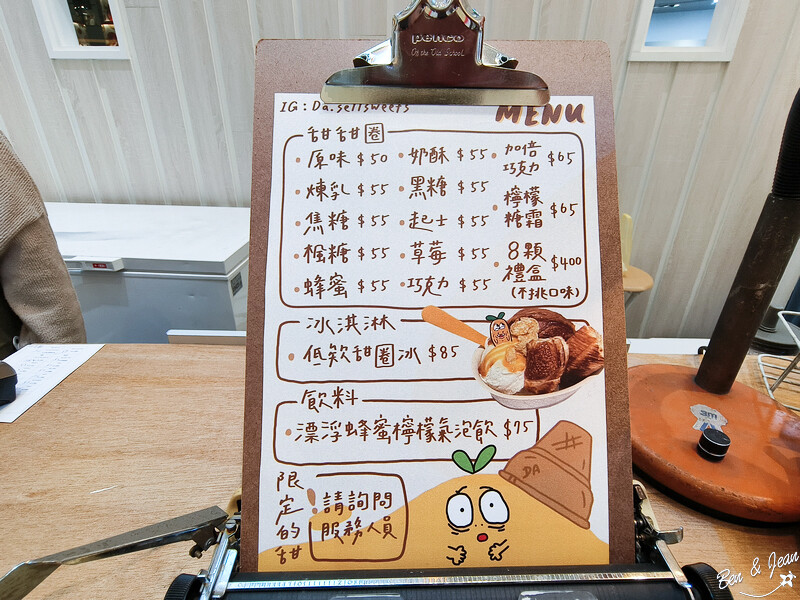 penco
On the Old School
IG : Da.sellsweets
MENU
甜甜圈
原味 $50
奶酥 $55
加倍
巧克力 $65
煉乳 $55
黑糖 $55
檸檬
糖霜 $65
焦糖 $55
起士 $55
楓糖 $55
草莓 $55
8顆
禮盒 $400
(不挑口味)
蜂蜜 $55
巧克力 $55
冰淇淋
低欸甜圈冰 $85
飲料
漂浮蜂蜜檸檬氣泡飲 $75
限定的甜
! 請詢問
服務人員
DA
3M
Ben & Jean